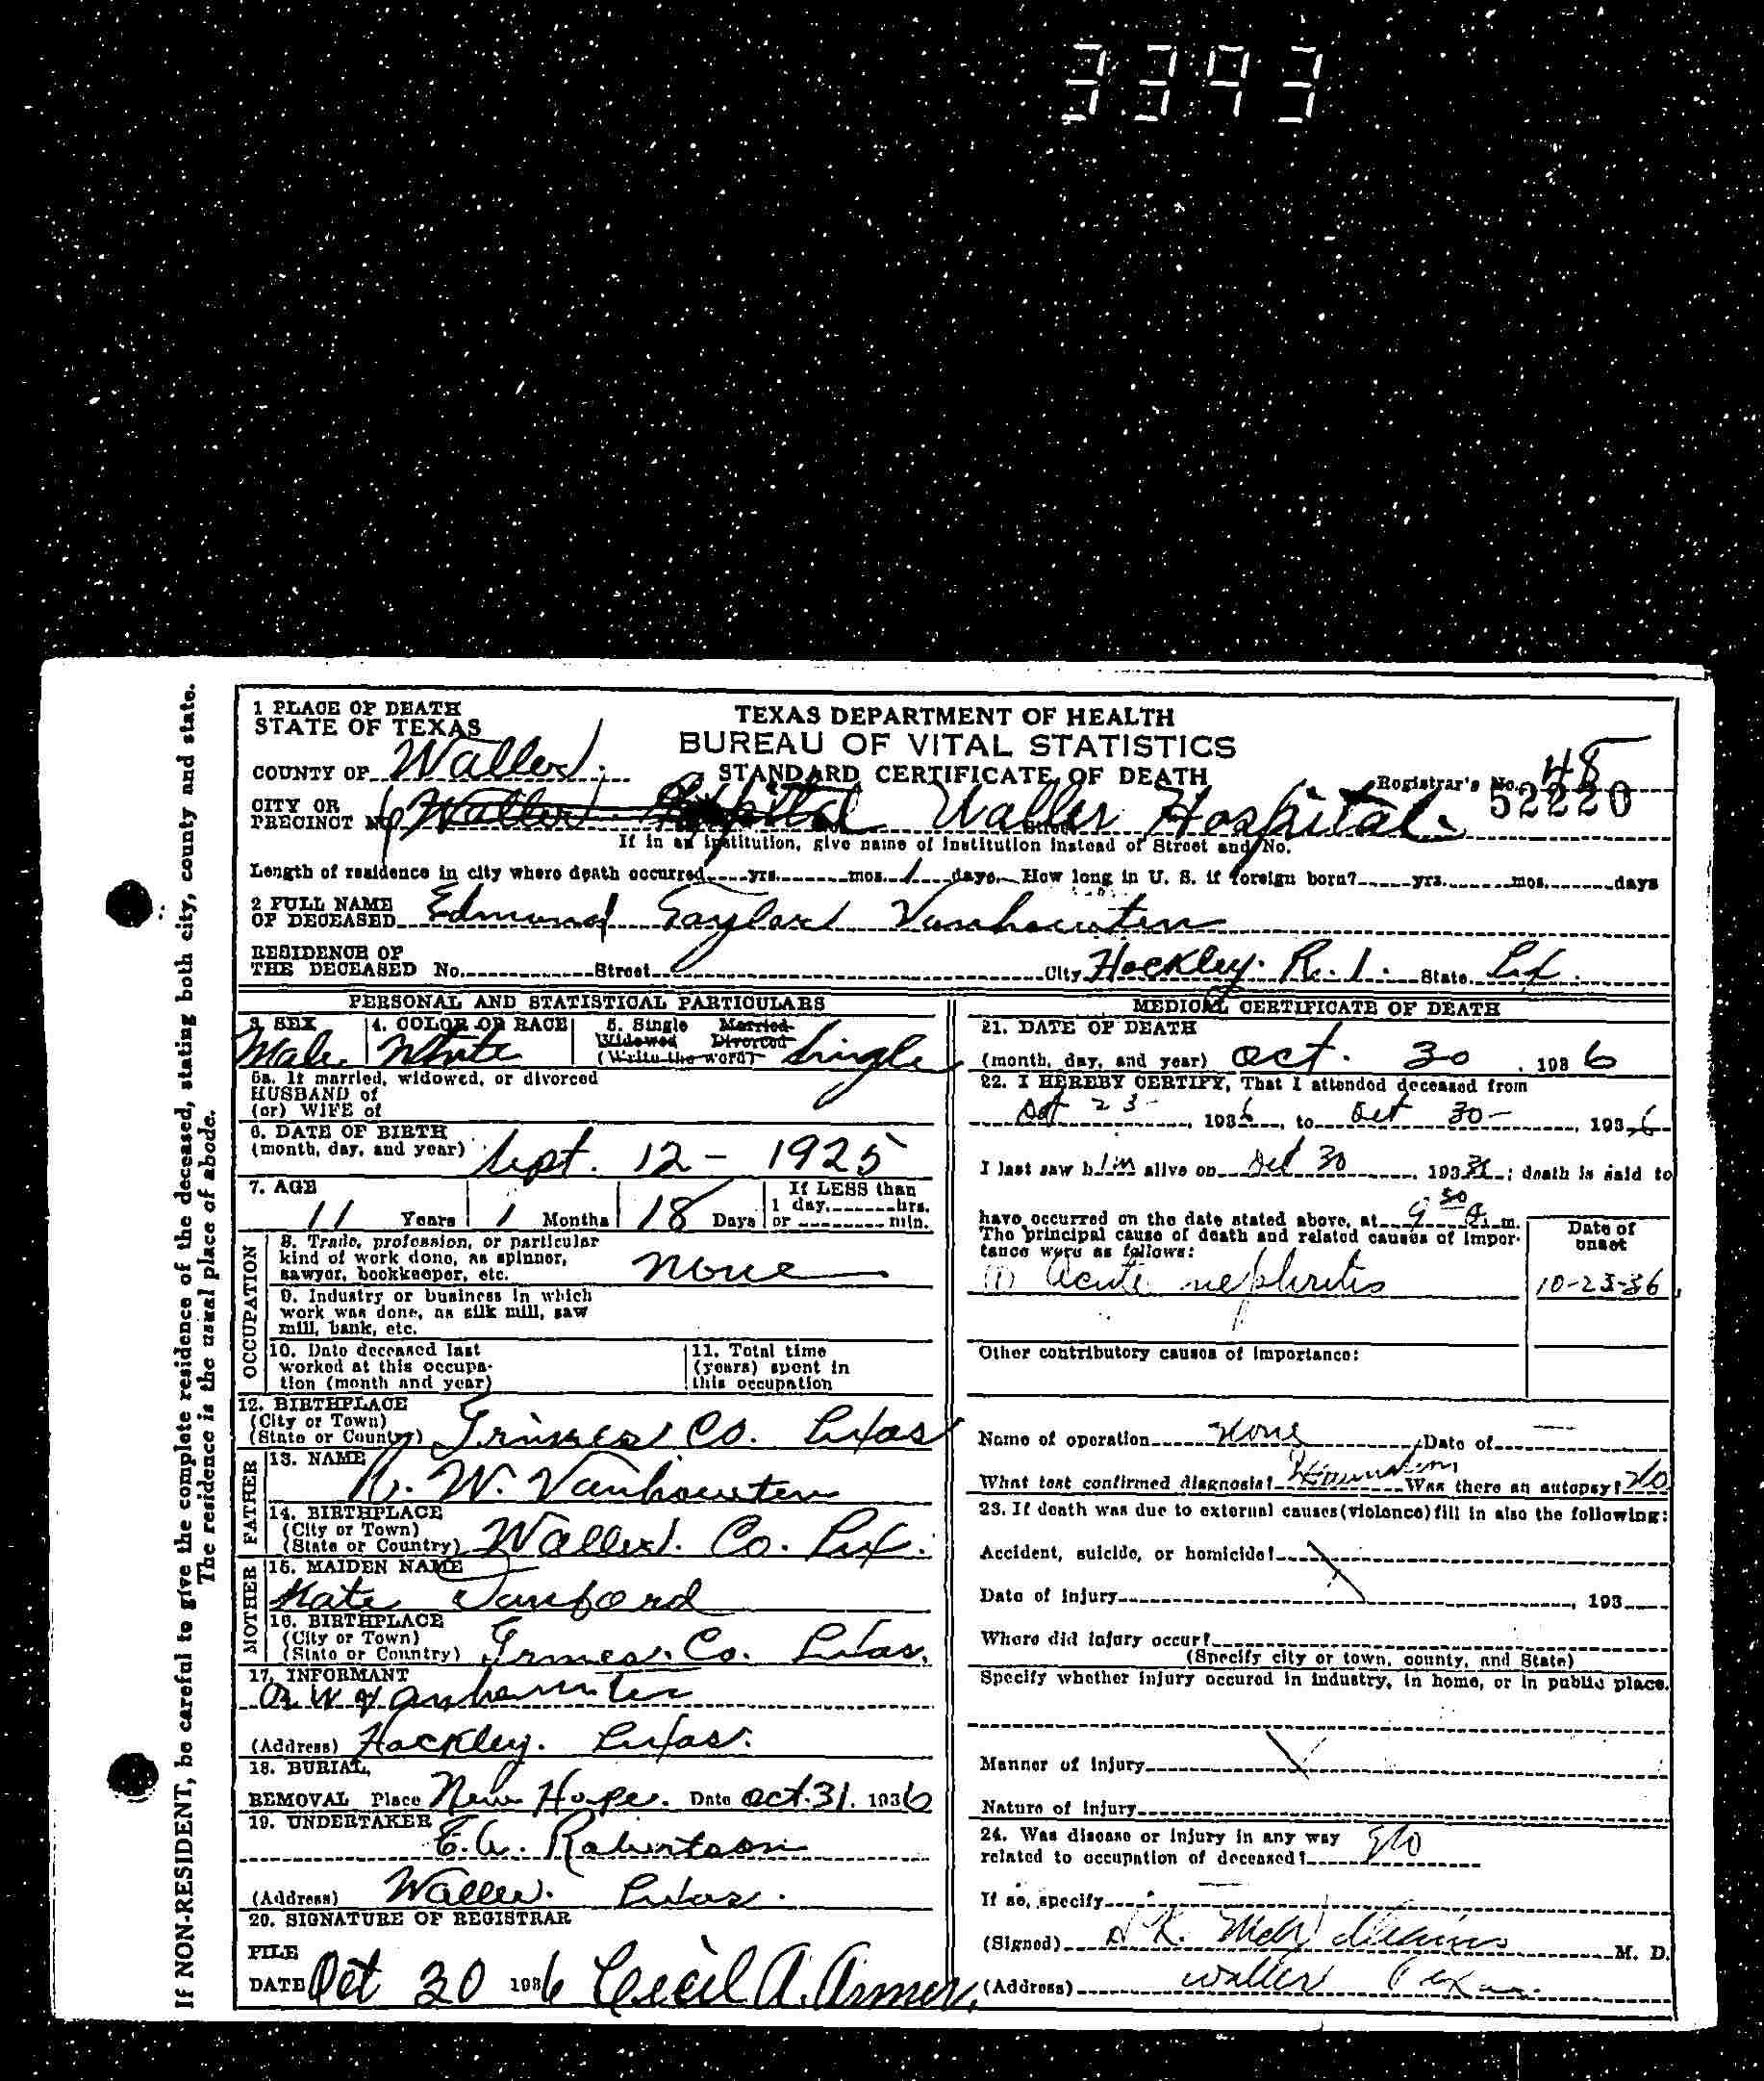 3393
If NON-RESIDENT, be careful to give the complete residence of the deceased, stating both city, county and state.
The residence is the usual place of abode.
1 PLACE OF DEATH
STATE OF TEXAS
COUNTY OF Waller
CITY OR
PRECINCT No
TEXAS DEPARTMENT OF HEALTH
BUREAU OF VITAL STATISTICS
STANDARD CERTIFICATE OF DEATH
Registrar's No. 48
52220
6 Waller Hospital Waller Hospital
If in an institution, give name of institution instead of Street and No.
Length of residence in city where death occurred yrs. mos. 1 days. How long in U. S. if foreign born? yrs. mos. days
2 FULL NAME
OF DECEASED Edmund Taylor Vanhouten
RESIDENCE OF
THE DECEASED No. Street City Hockley. R. 1. State Tex.
PERSONAL AND STATISTICAL PARTICULARS
3. SEX Male
4. COLOR OR RACE White
5. Single Married
Widowed Divorced
(Write the word) Single
5a. If married, widowed, or divorced
HUSBAND of
(or) WIFE of
6. DATE OF BIRTH
(month, day, and year) Sept. 12 - 1925
7. AGE
11 Years 1 Months 18 Days
If LESS than
1 day, hrs.
or min.
OCCUPATION
8. Trade, profession, or particular
kind of work done, as spinner,
sawyer, bookkeeper, etc. none
9. Industry or business in which
work was done, as silk mill, saw
mill, bank, etc.
10. Date deceased last
worked at this occupa-
tion (month and year)
11. Total time
(years) spent in
this occupation
12. BIRTHPLACE
(City or Town)
(State or Country) Grimes Co. Texas
FATHER
13. NAME W. Vanhouten
14. BIRTHPLACE
(City or Town)
(State or Country) Waller Co. Tex.
MOTHER
15. MAIDEN NAME
Kate
16. BIRTHPLACE
(City or Town)
(State or Country) Grimes Co. Texas.
17. INFORMANT
R. W. Vanhouten
(Address) Hockley. Texas.
18. BURIAL,
REMOVAL Place New Hope. Date Oct. 31. 1936
19. UNDERTAKER
Robertson
(Address) Waller. Texas.
20. SIGNATURE OF REGISTRAR
FILE
DATE Oct 30 1936 Cecil A.
MEDICAL CERTIFICATE OF DEATH
21. DATE OF DEATH
(month, day, and year) Oct. 30 , 1936
22. I HEREBY CERTIFY, That I attended deceased from
Oct 23 - , 1936, to Oct 30 - , 1936
I last saw him alive on Oct 30 1936; death is said to
have occurred on the date stated above, at 9 50 A. m.
The principal cause of death and related causes of impor-
tance were as follows:
Date of
onset
(1) Acute nephritis 10-23-36
Other contributory causes of importance:
Name of operation None Date of —
What test confirmed diagnosis? Was there an autopsy? No
23. If death was due to external causes (violence) fill in also the following:
Accident, suicide, or homicide?
Date of injury , 193
Where did injury occur?
(Specify city or town, county, and State)
Specify whether injury occured in industry, in home, or in public place.
Manner of injury
Nature of injury
24. Was disease or injury in any way
related to occupation of deceased? No
If so, specify
(Signed) K. M. D.
(Address) Waller Texas.